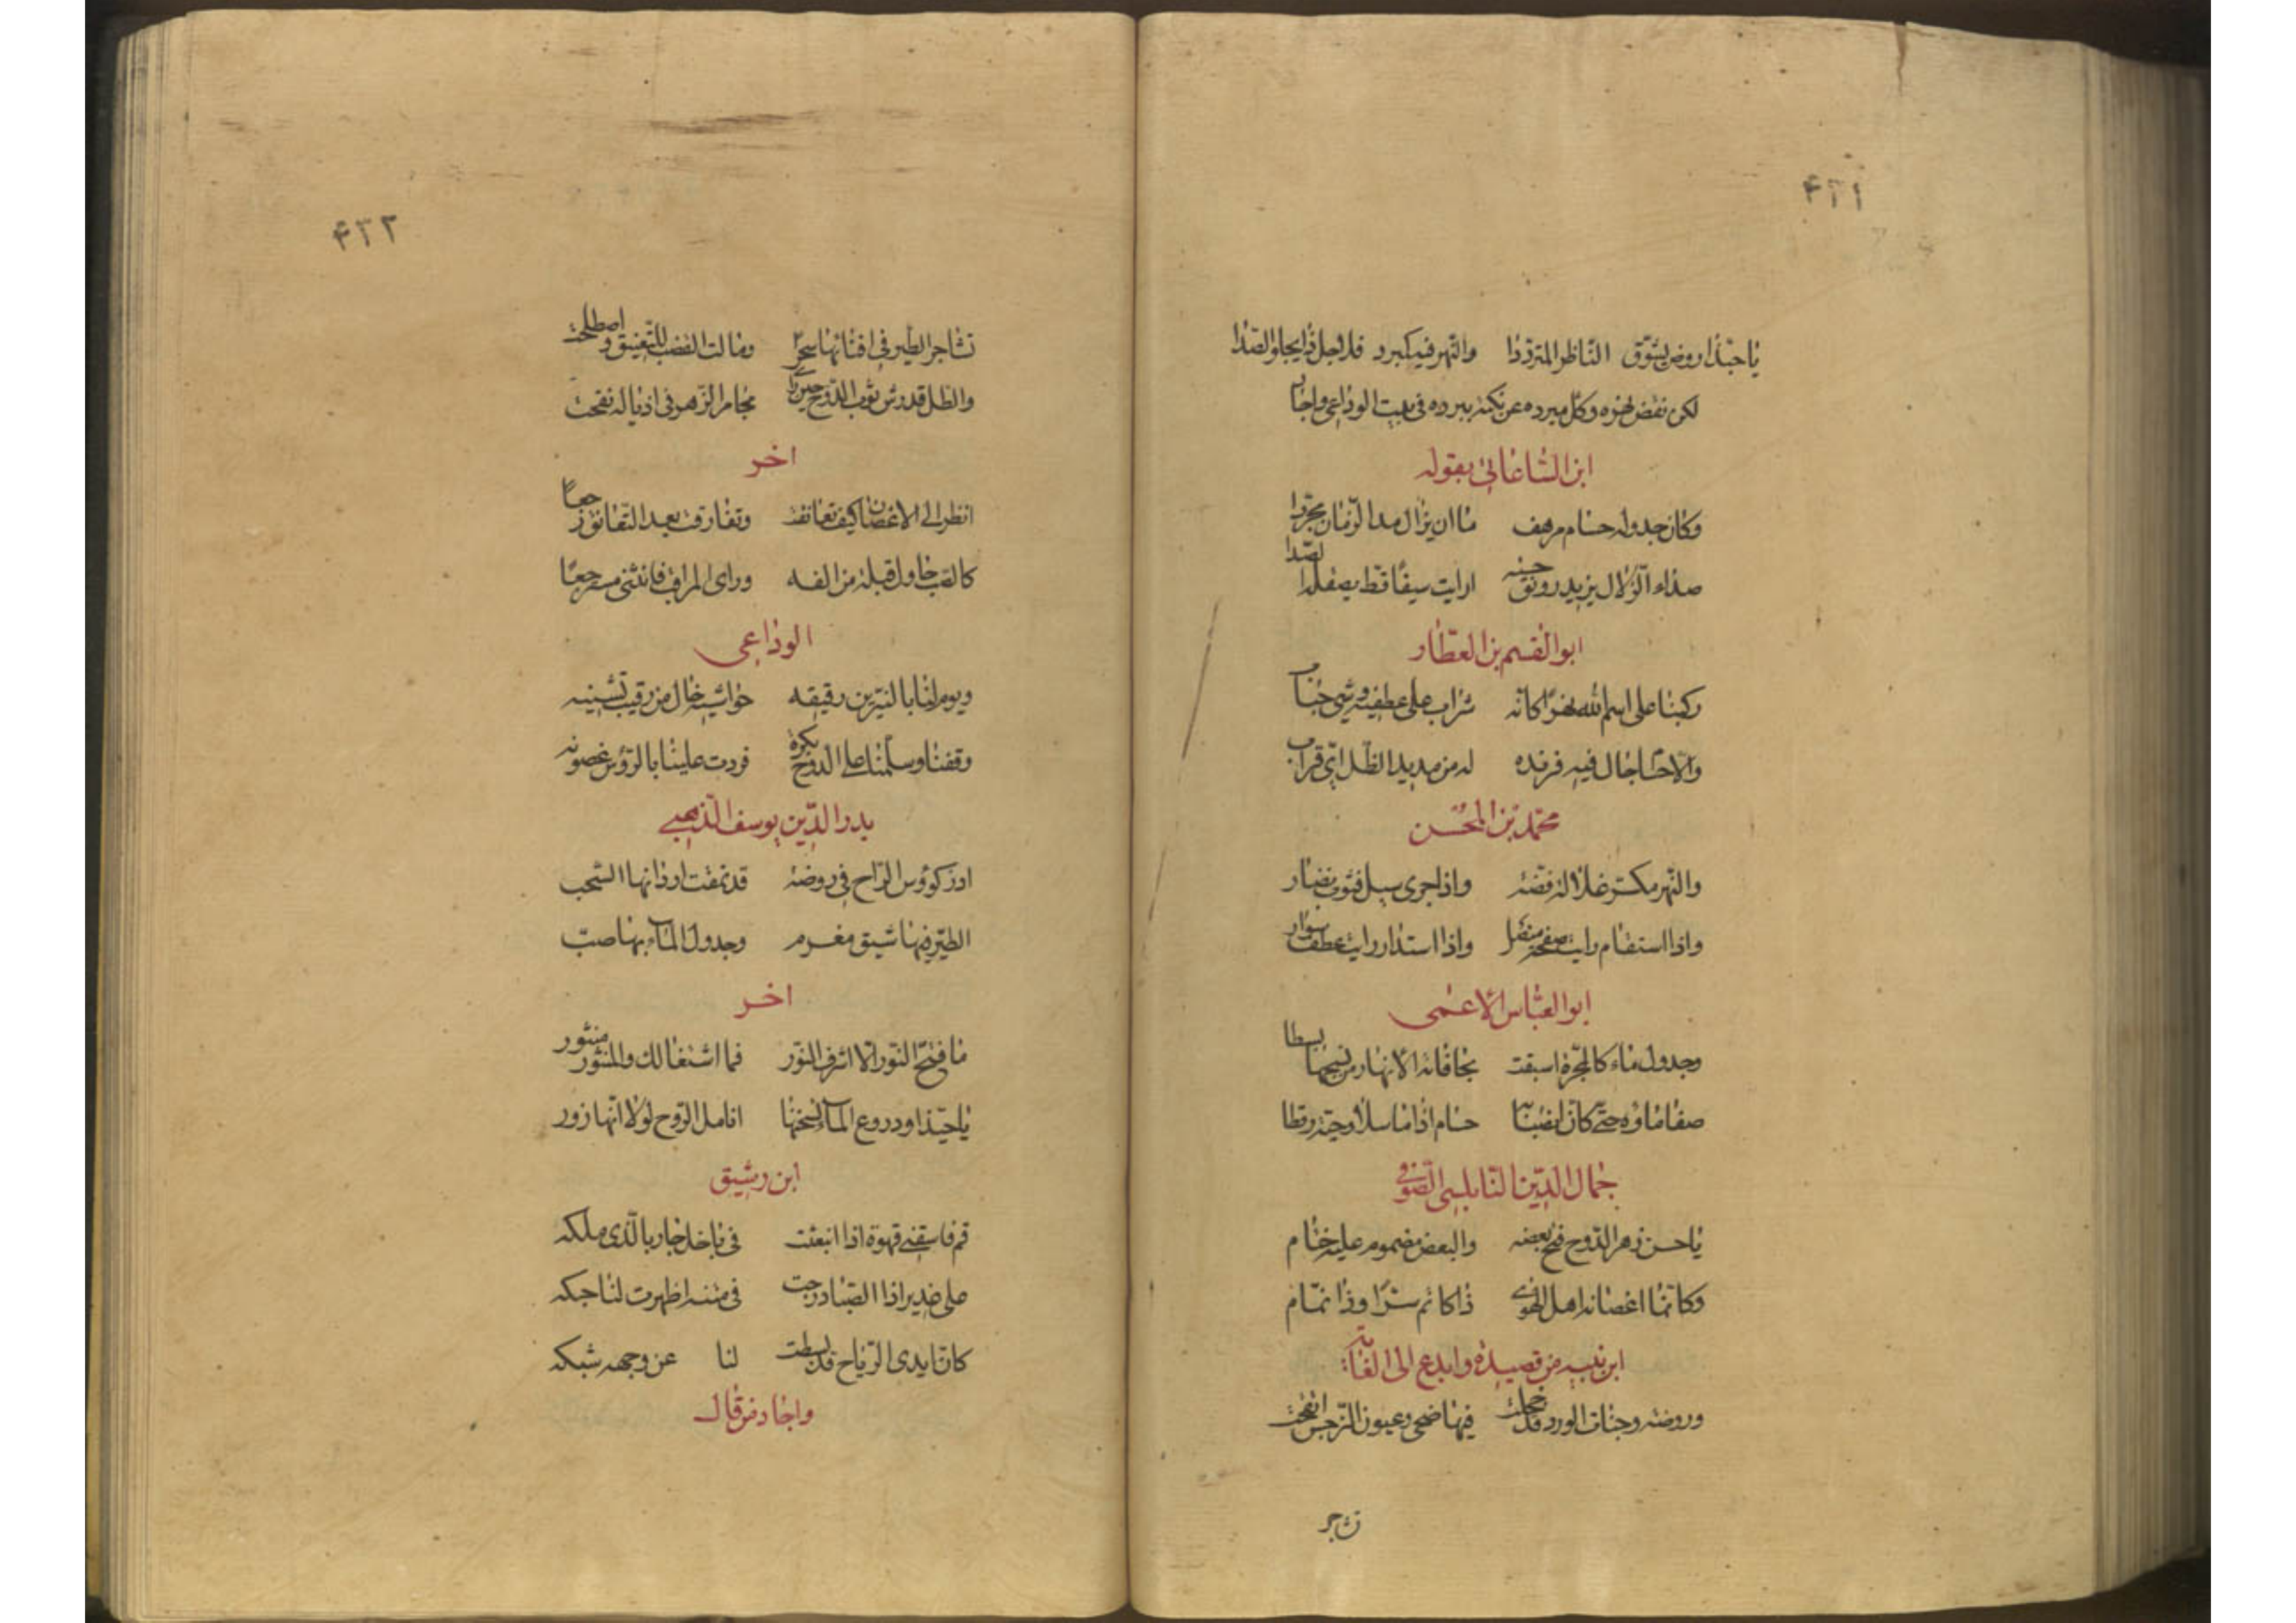 ٤٣١
يا حبذا روض يشوق الناظر المترددا والنهر فيه كمبرد فلاجل ذا يجلو الصدا
لكن نقض نحوه وكل مبرده عن نكتة ببرده في بيت الوداعي واجاب
ابن الساعاتي بقوله
وكان جدوله حسام مرهف ما ان يزال مدا الزمان مجردا
صداء الزلال يزيد رونق حسنه ارايت سيفا قط يصقله الصدا
ابو القسم بن العطار
ركبنا على اسم الله نهرا كانه شراب على عطفيه وشي حباب
والا حسا جال فيه فرنده له من مديد الظل اي قراب
محمد بن المحسن
والنهر مكسو غلالة فضة واذا جرى سيل فثوب نضار
واذا استقام رايت صفحة منصل واذا استدار رايت عطف سوار
ابو العباس الاعمى
وجدول ماء كالمجرة اسبقت بحافاته الانهار من نسجها بسطا
صفا ماؤه حتى كان لصبنا به حسام اذا ما سل اوحية رقطا
جمال الدين النابلسي الصوفي
يا حسن زهر الدوح فتح بعضه والبعض مضموم عليه ختام
وكانما اغصانه اهل الهوى ذا كاتم سرا وذا نمام
ابن نبيه من قصيدة وابدع الى الغاية
وروضة وجنات الورد قد خجلت فيها ضحى وعيون النرجس انفتحت
تشاجر
٤٣٢
تشاجر الطير في افنانها سحرا ومالت القضب للتعنيق واصطلحت
والطل قد رش ثوب الدوح حين راى مجامر الزهر في اذياله نفحت
اخر
انظر الى الاغصان كيف تعانقت وتفارقت بعد التعانق رجعا
كالصب حاول قبلة من الفه وراى المراقب فانثنى مسترجعا
الوداعي
ويوم لنا بالنيربين رقيقه حواشيه خال من رقيب يشينه
وقفنا وسلمنا على الدوح بكرة فردت علينا بالرؤس غصونه
بدر الدين يوسف الذهبي
ادر كوؤس الراح في روضة قد نمقت اردانها السحب
الطير فيها شيق مغرم وجدول الماء بها صب
اخر
ما فتح النور الا اشرف النور فما اشتغالك والمنثور منثور
يا حبذا ودروع الماء تنسجها انامل الروح لولا انها زور
ابن رشيق
قم فاسقني قهوة اذا انبعثت في باخل جار بالذي ملكه
على غدير اذا الصبا درجت في متنه اظهرت لنا حبكه
كان ايدى الرياح قد بسطت لنا عن وجهه شبكه
واجاد من قال